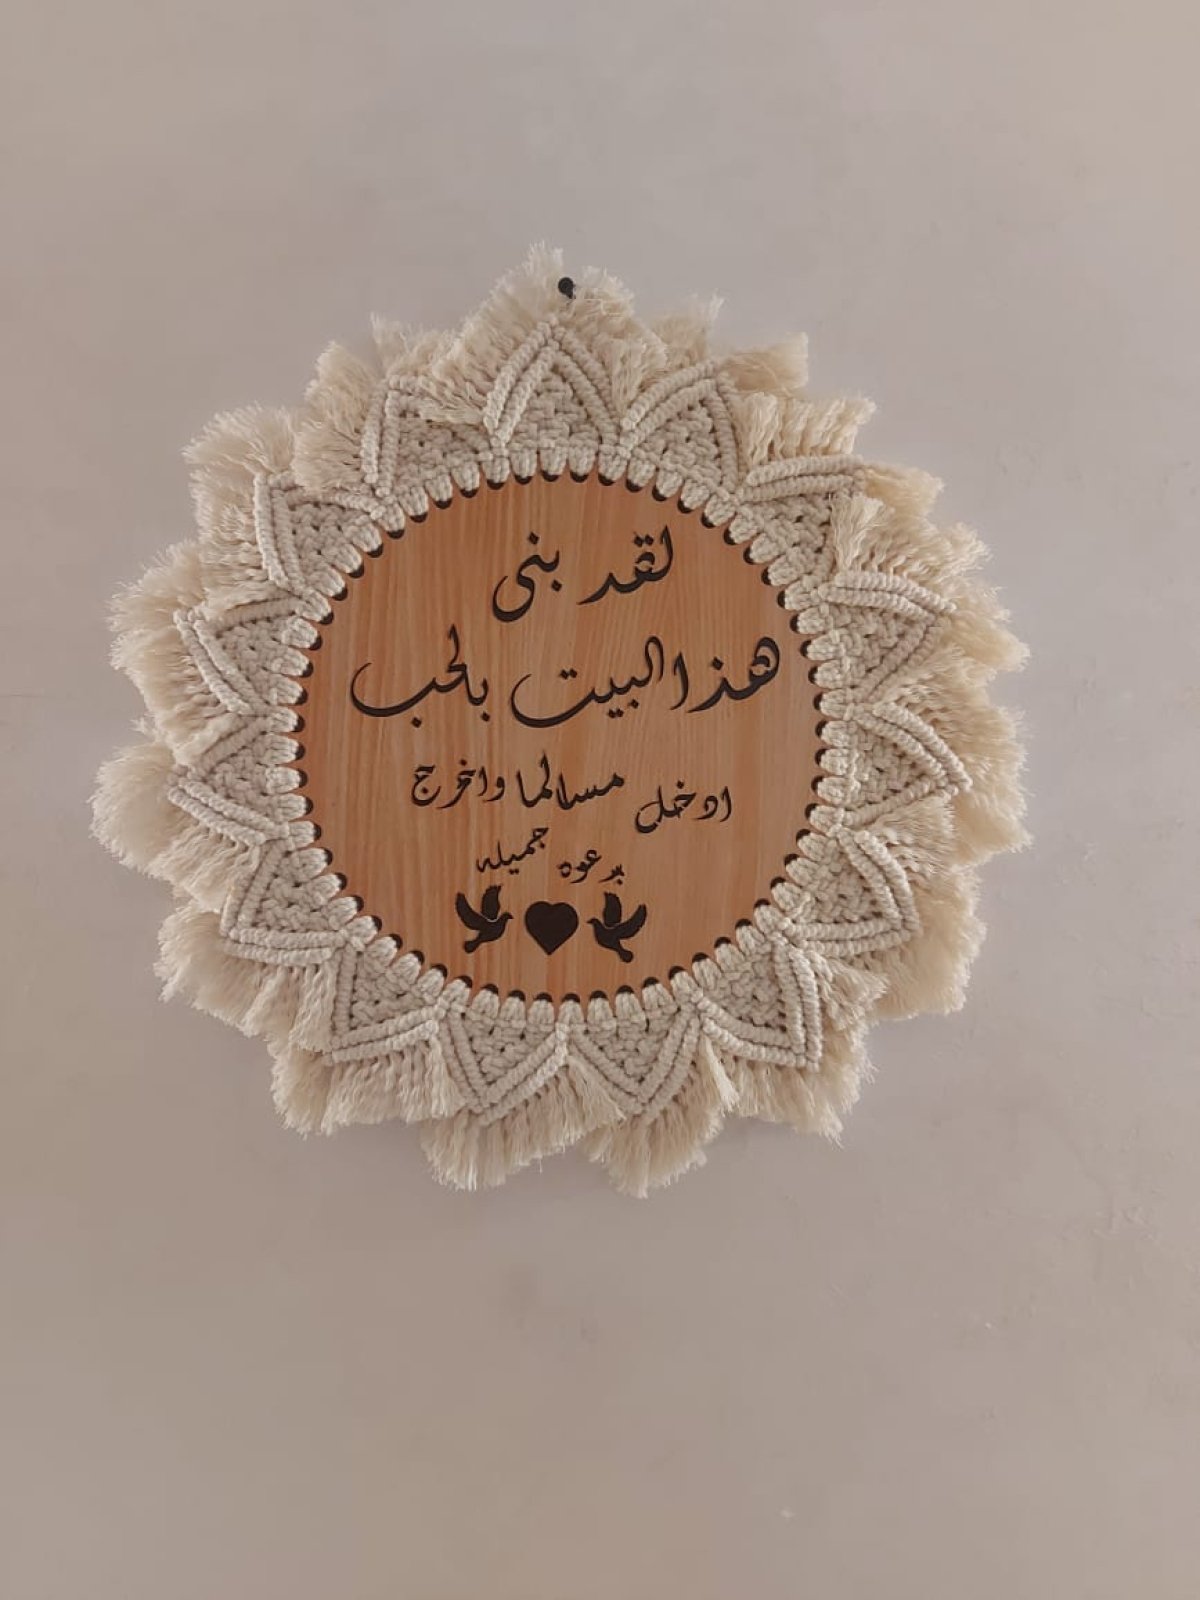 لقد بنى
هذا البيت بالحب
ادخل مسالما واخرج
بدعوه جميله